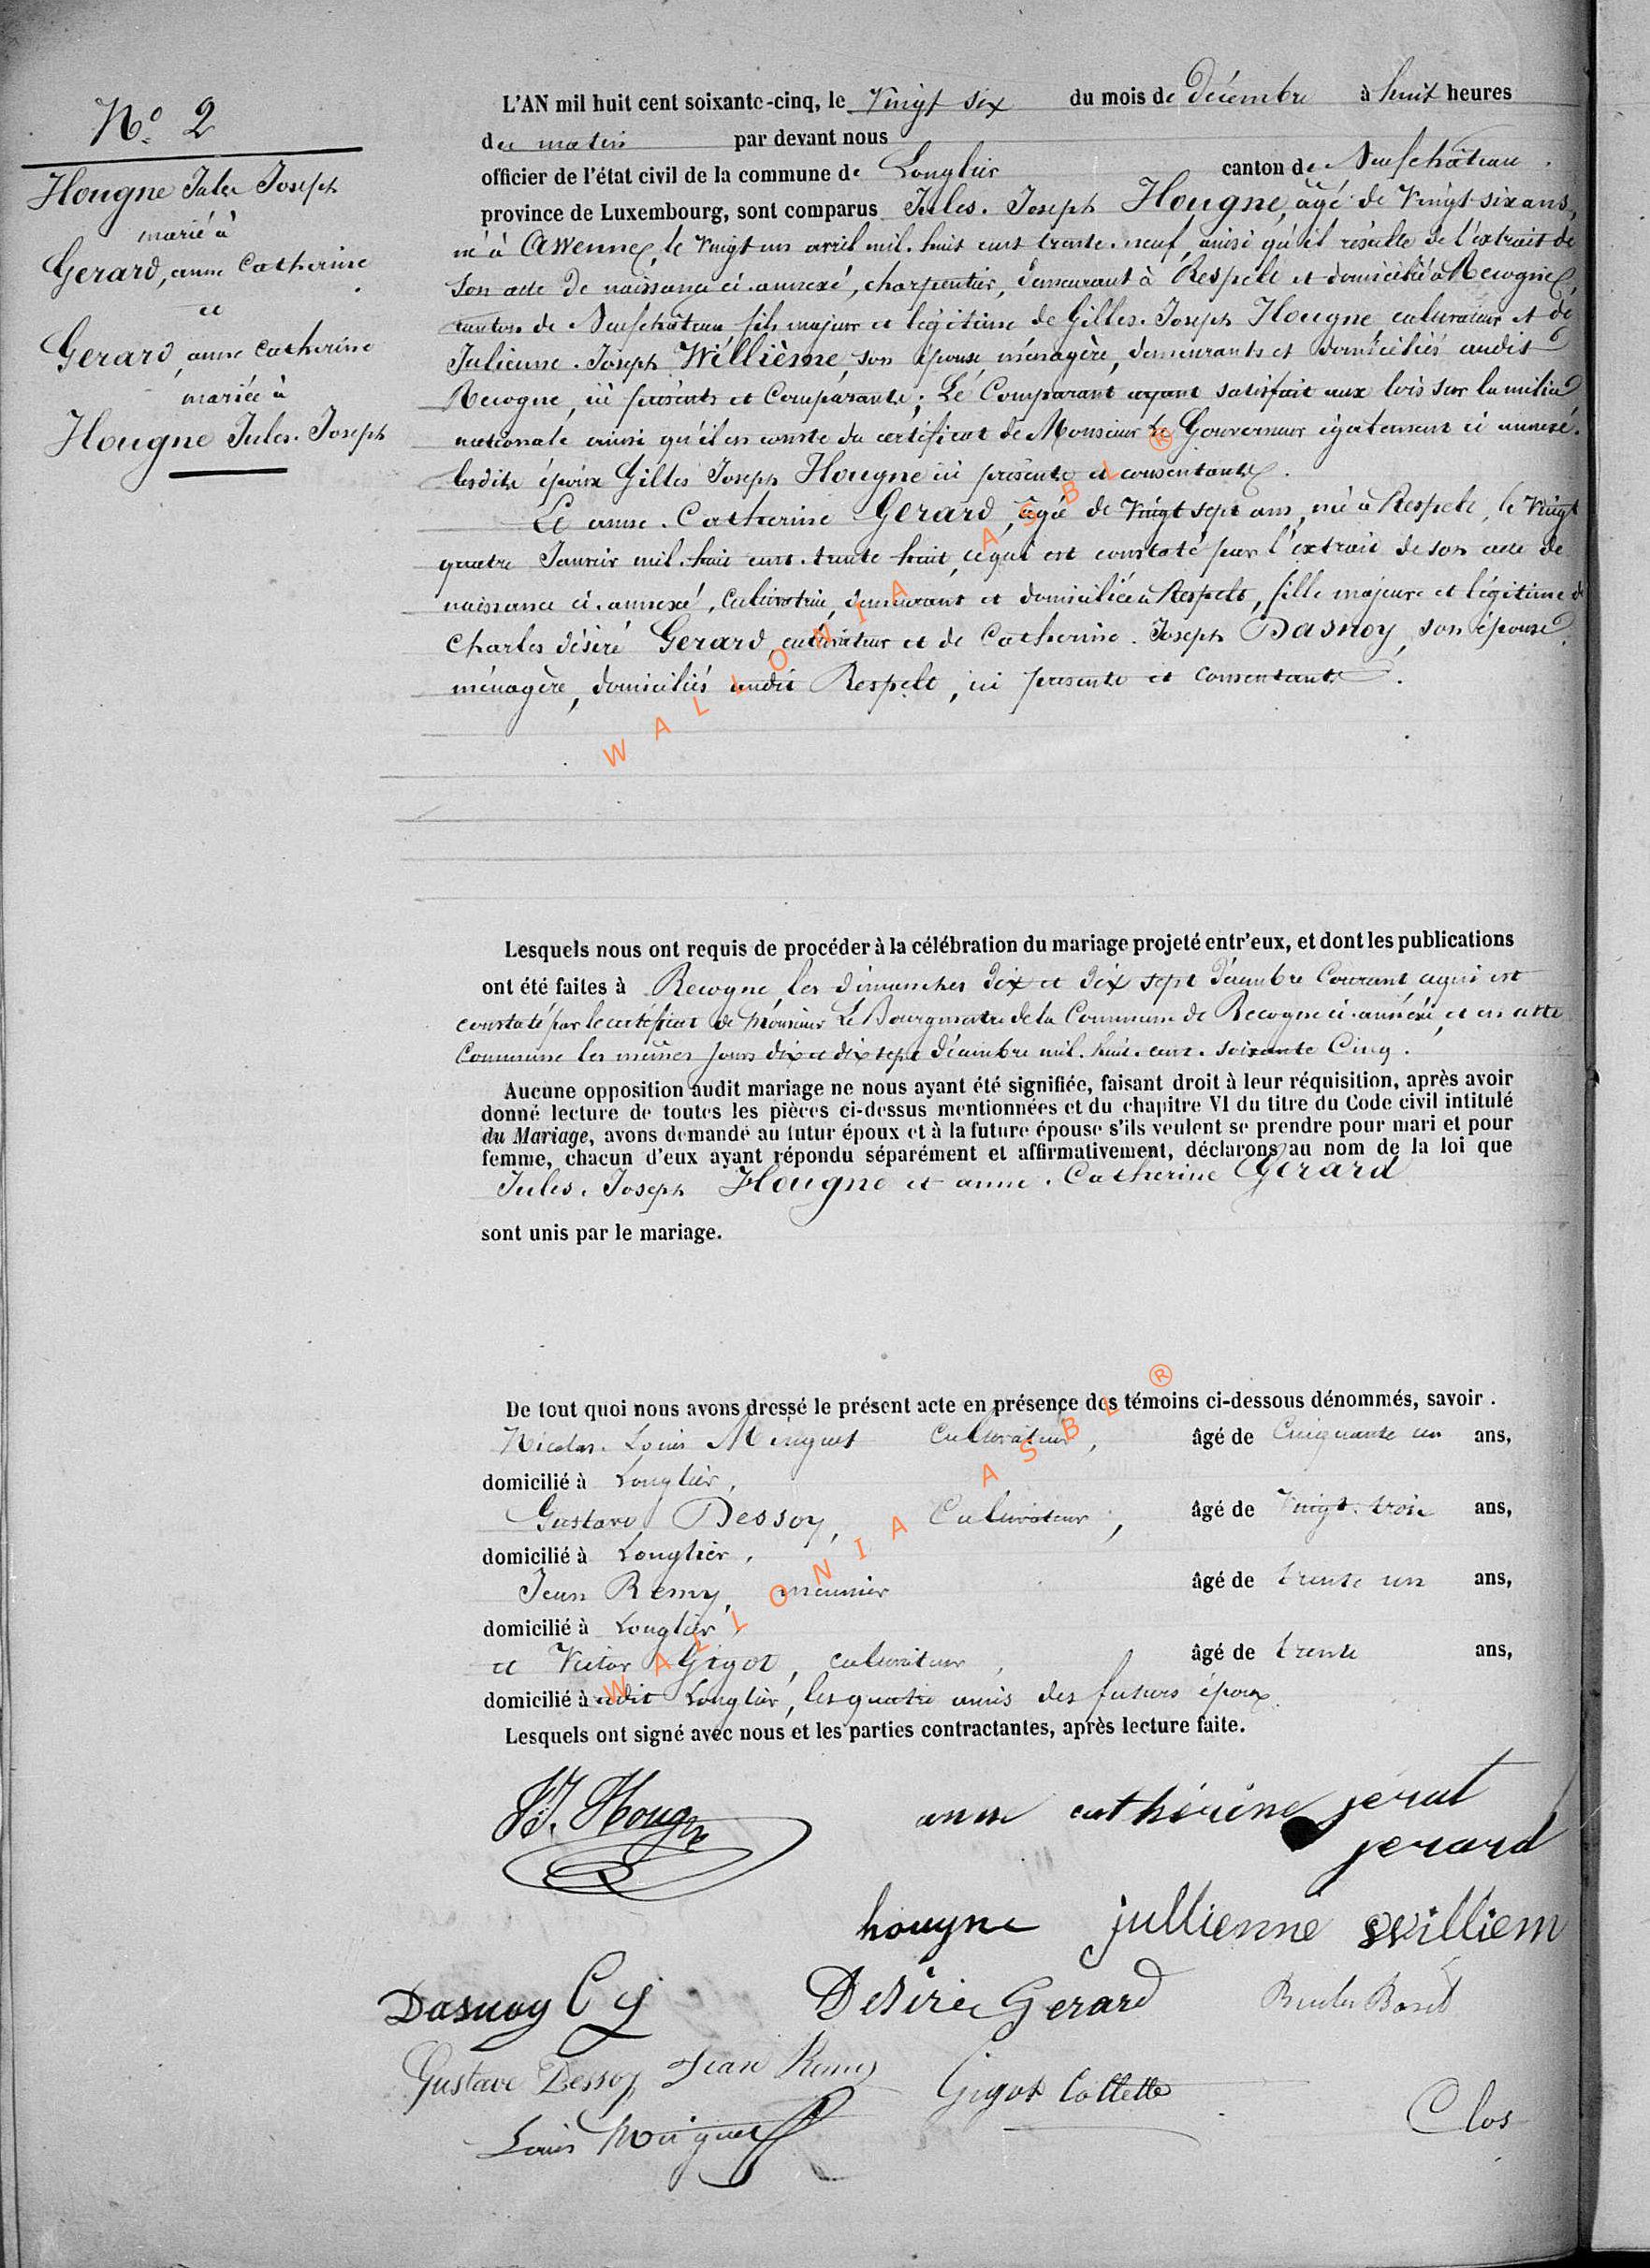 N.º 2
Hougne Jules Joseph
marié à
Gerard, anne Catherine
et
Gerard, anne Catherine
mariée à
Hougne Jules. Joseph
L'AN mil huit cent soixante-cinq, le Vingt six du mois de décembre à huit heures
du matin par devant nous
officier de l'état civil de la commune de Longlier canton de Neufchâteau.
province de Luxembourg, sont comparus Jules. Joseph Hougne, âgé de Vingt-six ans,
né à Awenne, le vingt un avril mil. huit cent trente. neuf, ainsi qu'il résulte de l'extrait de
son acte de naissance ci-annexé, charpentier, demeurant à Respelt et domicilié à Recogne,
canton de Neufchâteau fils majeur et légitime de Gilles. Joseph Hougne, cultivateur et de
Julienne. Joseph Willième, son épouse, ménagère, demeurants et domiciliés audit
Recogne, ici présents et ; Le Comparant ayant satisfait aux lois sur la milice
nationale ainsi qu'il en conste du certificat de Monsieur Le Gouverneur également ci annexé.
lesdits époux Gilles Joseph Hougne ici présents et consentants.
Et anne. Catherine Gerard, âgée de Vingt sept ans, née à Respelt, le Vingt
quatre Janvier mil. huit cent. trente huit, ce qui est constaté par l'extrait de son acte de
naissance ci-annexé, cultivatrice, demeurant et domiciliée à Respelt, fille majeure et légitime de
Charles désiré Gerard, cultivateur et de Catherine. Joseph Dasnoy, son épouse,
ménagère, domiciliés audit Respelt, ici présents et consentants.
Lesquels nous ont requis de procéder à la célébration du mariage projeté entr'eux, et dont les publications
ont été faites à Recogne, les dimanches dix et dix sept décembre Courant ce qui est
constaté par le certificat de Monsieur Le Bourgmestre de la Commune de Recogne ci-annexé, et en cette
Commune les mêmes jours dix et dix sept décembre mil. huit. cent. soixante Cinq.
Aucune opposition audit mariage ne nous ayant été signifiée, faisant droit à leur réquisition, après avoir
donné lecture de toutes les pièces ci-dessus mentionnées et du chapitre VI du titre du Code civil intitulé
du Mariage, avons demandé au futur époux et à la future épouse s'ils veulent se prendre pour mari et pour
femme, chacun d'eux ayant répondu séparément et affirmativement, déclarons au nom de la loi que
Jules. Joseph Hougne et anne. Catherine Gerard
sont unis par le mariage.
De tout quoi nous avons dressé le présent acte en présence des témoins ci-dessous dénommés, savoir.
Nicolas. Louis Minguet Cultivateur, âgé de Cinquante un ans,
domicilié à Longlier,
Gustave Dessoy, Cultivateur, âgé de Vingt. trois ans,
domicilié à Longlier,
Jean Remy, meunier âgé de trente un ans,
domicilié à Longlier,
et Victor Gigot, cultivateur, âgé de trente ans,
domicilié à udit Longlier, les quatre amis des futurs époux.
Lesquels ont signé avec nous et les parties contractantes, après lecture faite.
J.J. Hougne anne cathérine jerat
jerard
hougne jullienne williem
Dasnoy C J Désirée Gerard
Gustave Dessoy Jean Remy Gigot Collette
Louis Minguet Clos
WALLONIA ASBL ®
WALLONIA ASBL ®